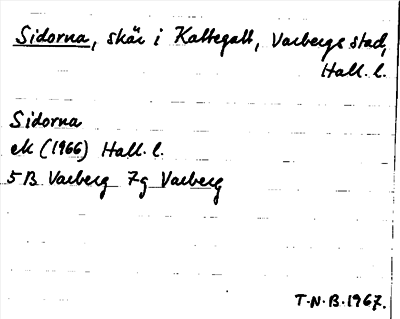 Sidorna, skär i Kattegatt, Varbergs stad,
Hall. l.
Sidorna
ek (1966) Hall. l.
5B Varberg 7g Varberg
T.N.B.1967.